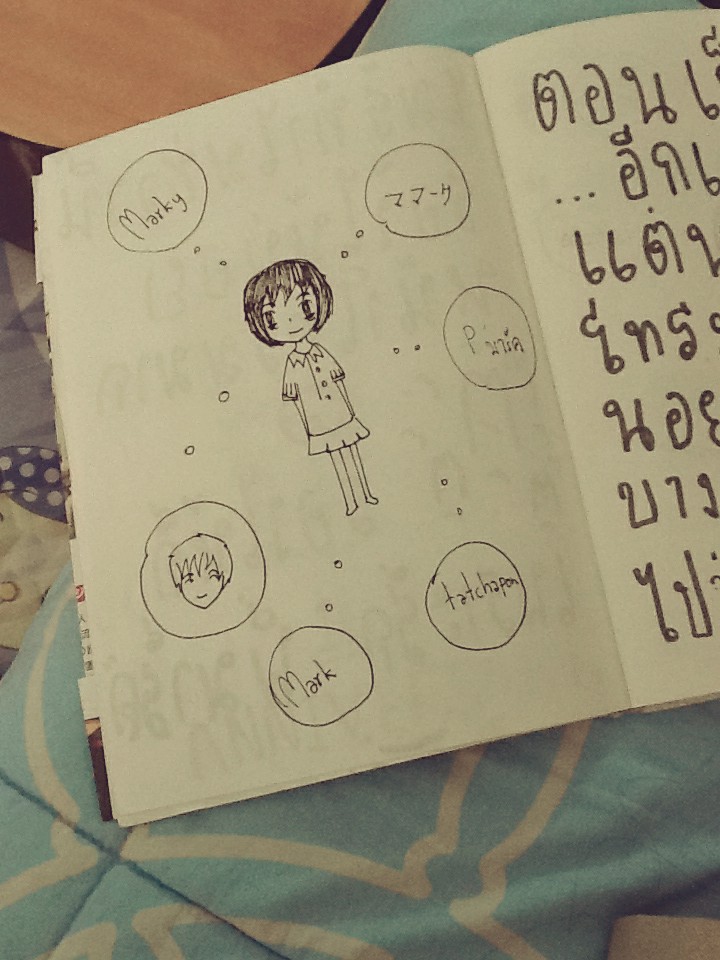 Marky
ママーク
P'มาร์ค
tatchapon
Mark
ตอนเ
...อีก
แต่
โทร
นอย
บาง
ไป